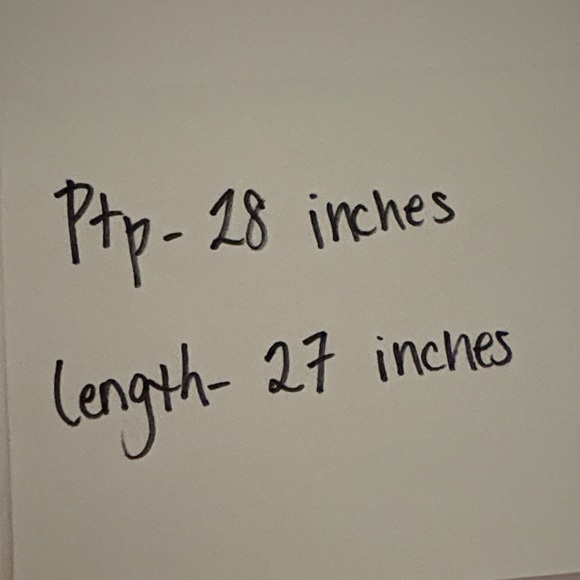 Ptp- 28 inches
length- 27 inches